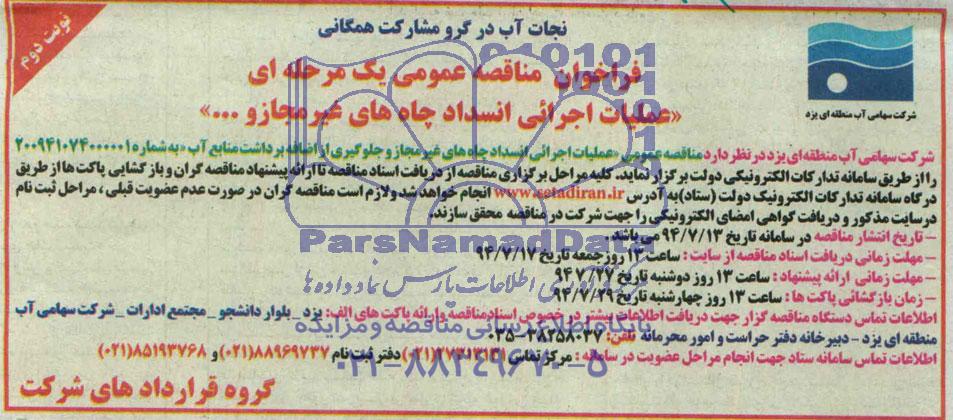 نوبت دوم
نجات آب در گرو مشارکت همگانی
فراخوان مناقصه عمومی یک مرحله ای
«عملیات اجرائی انسداد چاه های غیرمجازو ...»
شرکت سهامی آب منطقه ای یزد
شرکت سهامی آب منطقه ای یزد در نظر دارد مناقصه عمومی «عملیات اجرائی انسداد چاه های غیر مجاز و جلوگیری از اضافه برداشت منابع آب» به شماره ۲۰۰۹۴۱۰۷۴۰۰۰۰۰۱
را از طریق سامانه تدارکات الکترونیکی دولت برگزار نماید. کلیه مراحل برگزاری مناقصه از دریافت اسناد مناقصه تا ارائه پیشنهاد مناقصه گران و بازکشایی پاکت ها از طریق
درگاه سامانه تدارکات الکترونیک دولت (ستاد) به آدرس www.setadiran.ir انجام خواهد شد و لازم است مناقصه گران در صورت عدم عضویت قبلی، مراحل ثبت نام
در سایت مذکور و دریافت گواهی امضای الکترونیکی را جهت شرکت در مناقصه محقق سازند.
– تاریخ انتشار مناقصه در سامانه تاریخ ۹۴/۷/۱۳ می باشد.
– مهلت زمانی دریافت اسناد مناقصه از سایت: ساعت ۱۳ روز جمعه تاریخ ۹۴/۷/۱۷
– مهلت زمانی ارائه پیشنهاد: ساعت ۱۳ روز دوشنبه تاریخ ۹۴/۷/۲۷
– زمان بازکشائی پاکت ها: ساعت ۱۳ روز چهارشنبه تاریخ ۹۴/۷/۲۹
اطلاعات تماس دستگاه مناقصه گزار جهت دریافت اطلاعات بیشتر در خصوص اسناد مناقصه و ارائه پاکت های الف: یزد_ بلوار دانشجو _ مجتمع ادارات _ شرکت سهامی آب
منطقه ای یزد – دبیرخانه دفتر حراست و امور محرمانه تلفن: ۳۸۲۵۸۰۳۷-۰۳۵
اطلاعات تماس سامانه ستاد جهت انجام مراحل عضویت در سامانه: مرکز تماس (۰۲۱) دفتر ثبت نام ۸۸۹۶۹۷۳۷(۰۲۱) و ۸۵۱۹۳۷۶۸(۰۲۱)
گروه قرارداد های شرکت
ParsNamadData
فن آوری اطلاعات پارس نماد داده ها
پایگاه اطلاع رسانی مناقصه و مزایده
۰۲۱-۸۸۳۴۹۶۷۰-۵